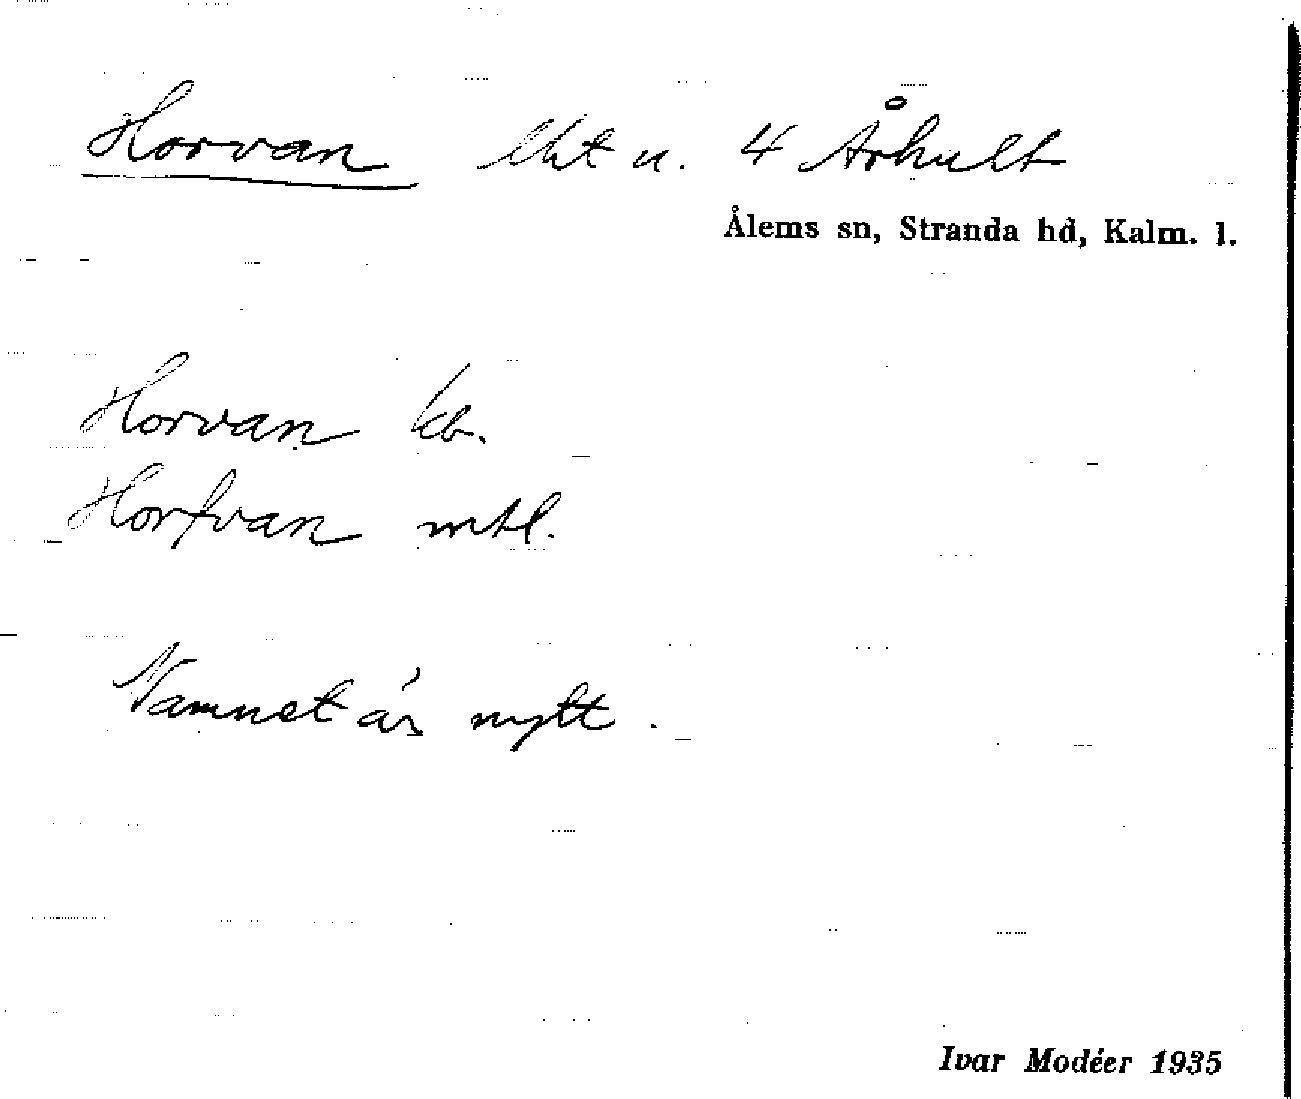 Horvan lht u. 4 Århult
Ålems sn, Stranda hd, Kalm. l.
Horvan kb.
Horfvan mtl.
Namnet är nytt.
Ivar Modéer 1935